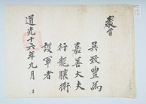 敎旨
吳致豊爲
嘉善大夫
行龍驤衛
護軍者
道光十六年九月 日